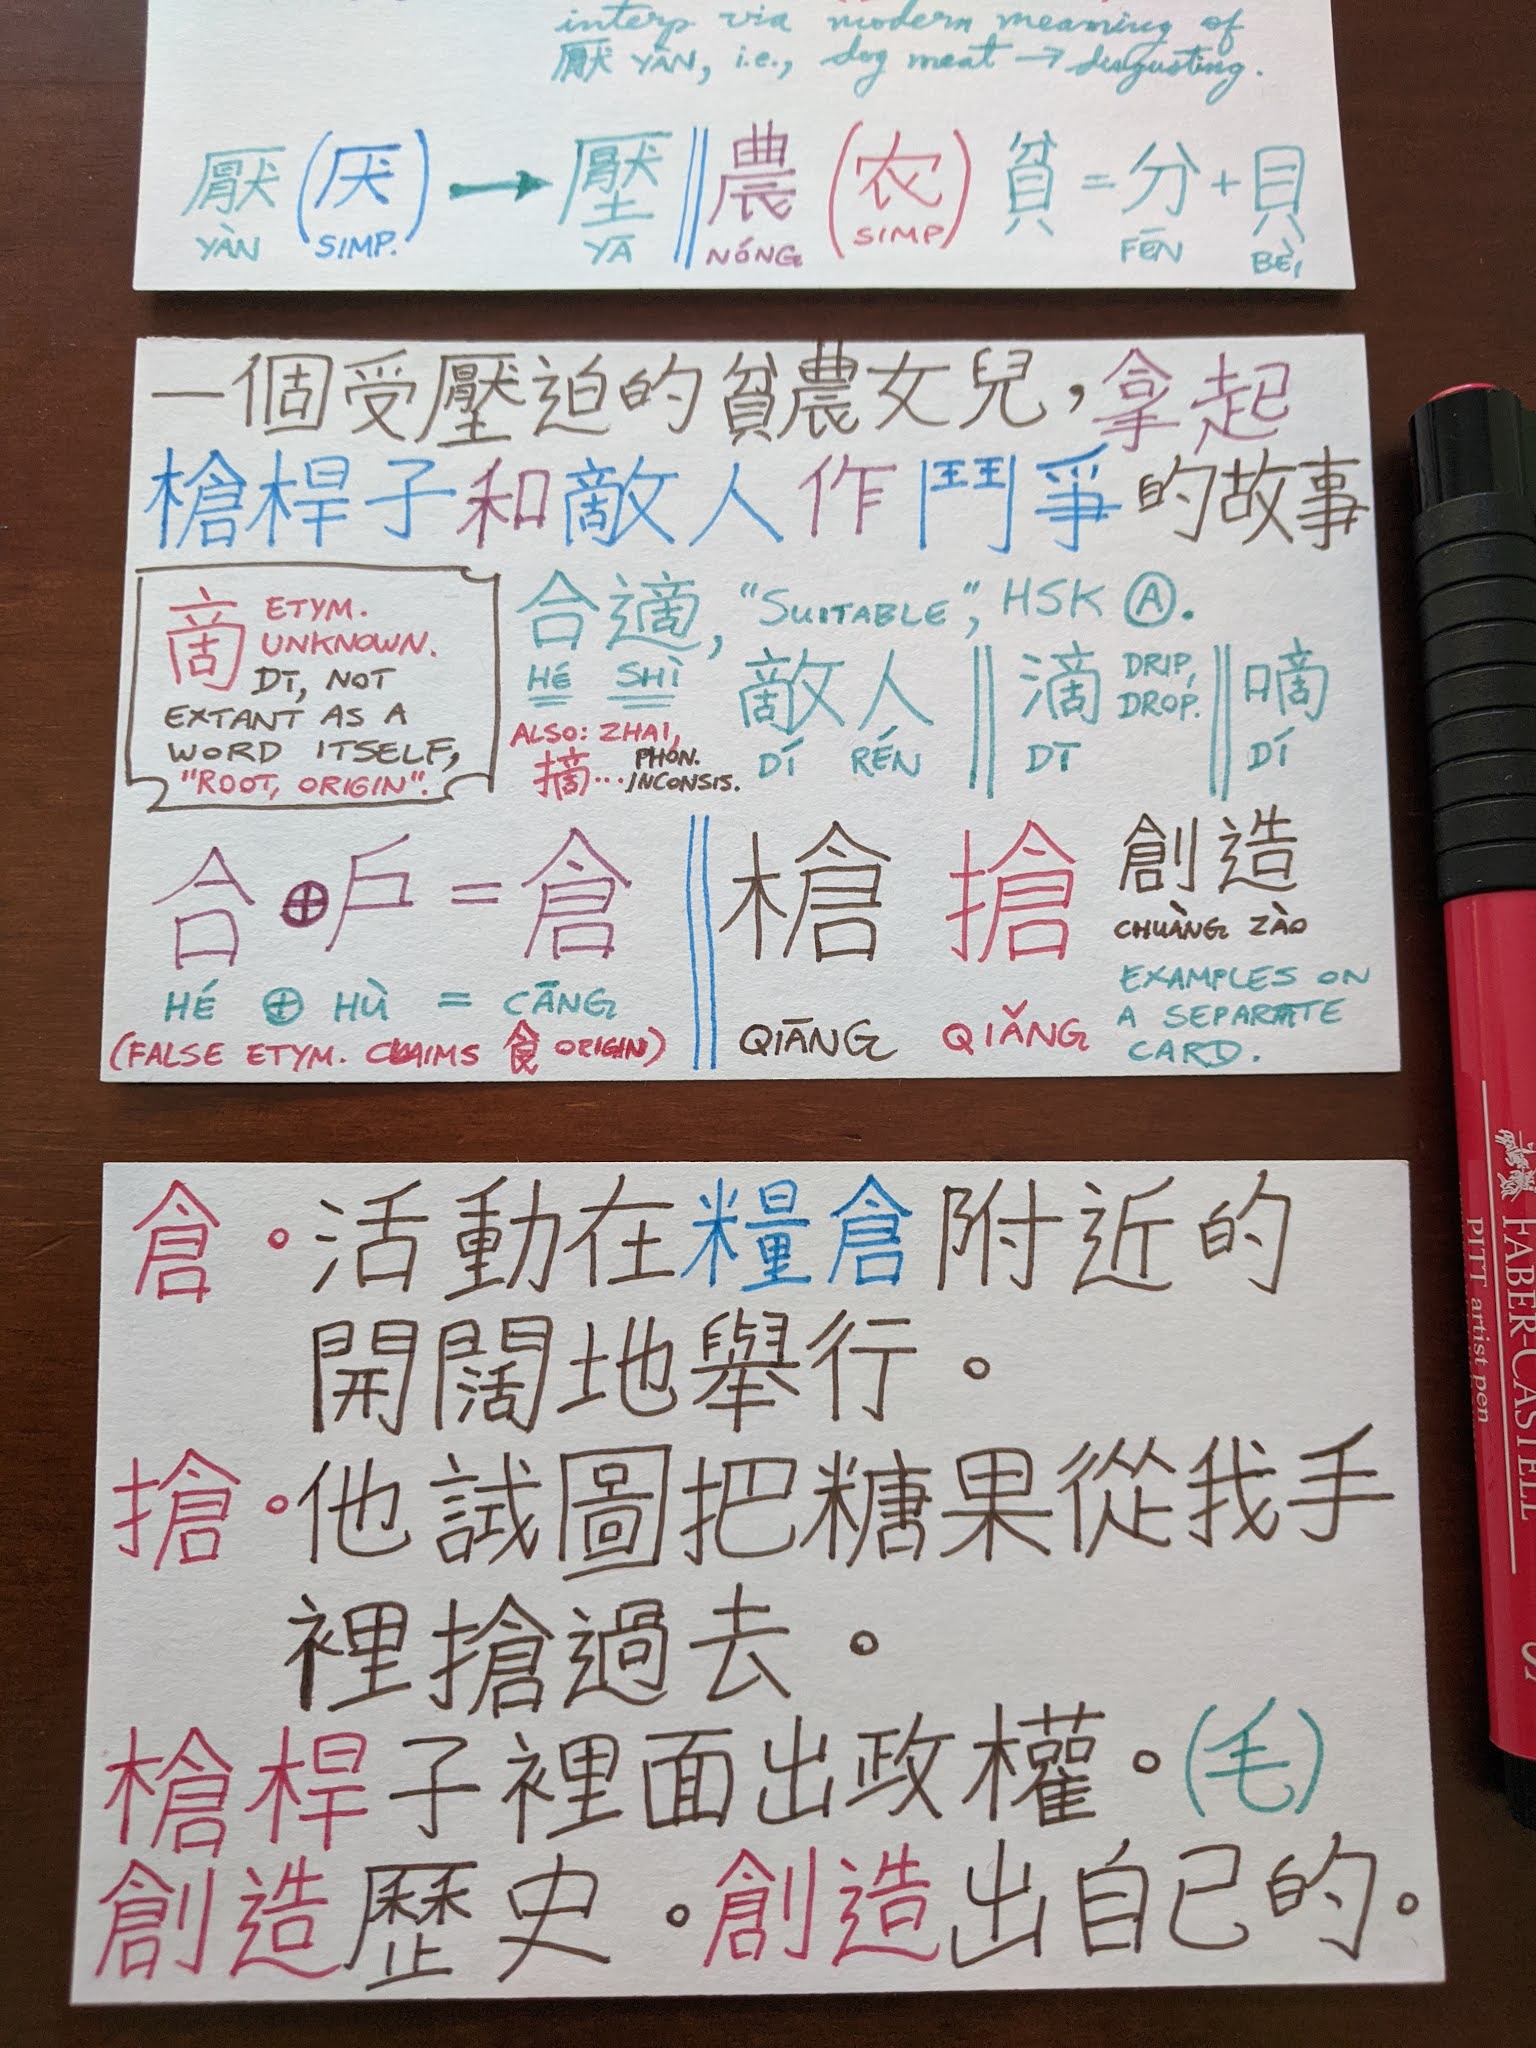 interp via modern meaning of
厭 YÀN, i.e., dog meat → disgusting.
厭 (厌) → 壓 || 農 (农) 貧 = 分 + 貝
YÀN SIMP. YĀ NÓNG SIMP FĒN BÈI
一個受壓迫的貧農女兒，拿起
槍桿子和敵人作鬥爭的故事
啇 ETYM.
UNKNOWN.
DĪ, NOT
EXTANT AS A
WORD ITSELF,
"ROOT, ORIGIN".
合適, "SUITABLE", HSK Ⓐ.
HÉ SHÌ
ALSO: ZHAI,
摘... PHON.
INCONSIS.
敵人 || 滴 DRIP, DROP. || 嘀
DÍ RÉN DĪ DÍ
合 ⊕ 戶 = 倉 || 槍 搶 創造
HÉ ⊕ HÙ = CĀNG QIĀNG QIǍNG CHUÀNG ZÀO
(FALSE ETYM. CLAIMS 食 ORIGIN)
EXAMPLES ON
A SEPARATE
CARD.
倉。活動在糧倉附近的
開闊地舉行。
搶。他試圖把糖果從我手
裡搶過去。
槍桿子裡面出政權。(毛)
創造歷史。創造出自己的。
FABER-CASTELL
PITT artist pen